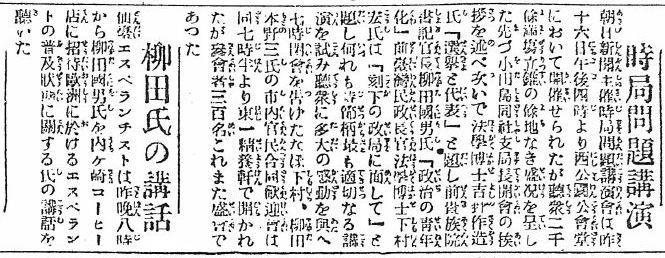 時局問題講演
朝日新聞主催時局問題講演會は昨
十六日午後四時より西公園公會堂
において開催せられたが聽衆二千
餘滿場立錐の餘地なき盛況を呈し
た先づ小山島同社支局長開會の挨
拶を述べ次いで法學博士吉野作造
氏「選擧と代表」と題し前貴族院
書記官長柳田國男氏「政治の靑年
化」前臺灣民政長官法學博士下村
宏氏は「刻下の政局に面して」と
題し何れも時節柄最も適切なる講
演を試み聽衆に多大の感動を與へ
七時閉會を告げたなほ下村、柳田
本野三氏の市内官民合同歡迎會は
同七時半より東一精養軒で開かれ
たが參會者三百名これまた盛會で
あつた
柳田氏の講話
仙臺エスペランチストは昨晩八時
から柳田國男氏を内ケ崎コーヒー
店に招待歐洲に於けるエスペラン
トの普及狀況に關する氏の講話を
聽いた